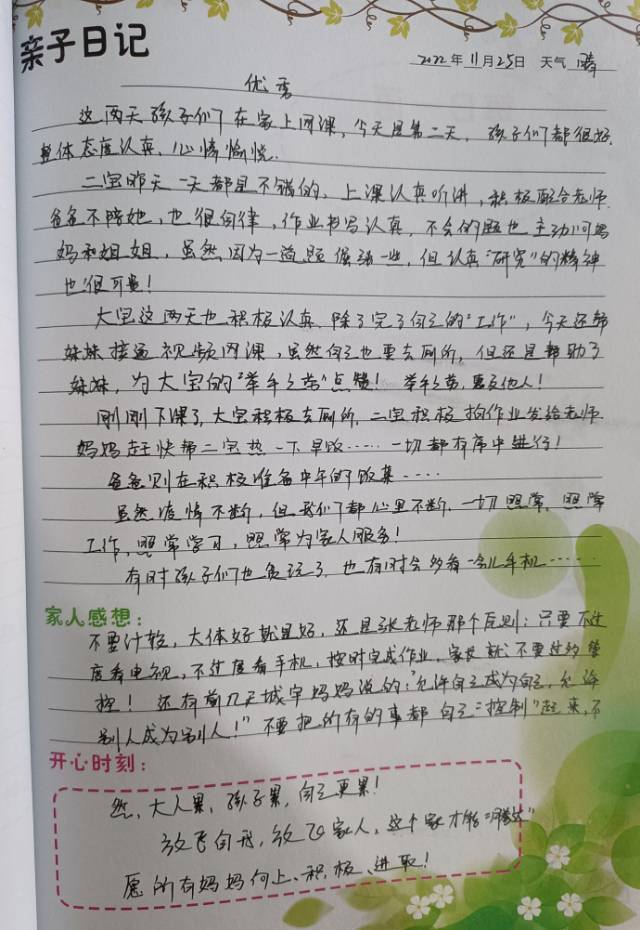 亲子日记
2022年11月25日 天气 晴
优秀
这两天孩子们在家上网课,今天是第二天,孩子们都很好,
整体态度认真、心情愉悦.
二宝昨天一天都是不错的,上课认真听讲,积极配合老师.
爸爸不陪她,也很自律,作业书写认真,不会的题也主动问妈
妈和姐姐,虽然因为一道题倔强一些,但认真“研究”的精神
也很可贵!
大宝这两天也积极认真、除了完了自己的“工作”,今天还帮
妹妹接通视频网课,虽然自己也要去厕所,但还是帮助了
妹妹,为大宝的“举手之劳”点赞! 举手之劳,惠及他人!
刚刚下课了,大宝积极去厕所,二宝积极拍作业发给老师
妈妈赶快帮二宝热一下早饭……一切都有序中进行!
爸爸则在积极准备中午的饭菜……
虽然疫情不断,但我们都心里不断,一切照常,照常
工作,照常学习,照常为家人服务!
有时孩子们也贪玩了,也有时会多看一会儿手机……
家人感想:
不要计较,大体好就是好,还是张老师那个原则:只要不过
度看电视,不过度看手机,按时完成作业,家长就不要过多管
控!还有前几天城宇妈妈说的:“允许自己成为自己,允许
别人成为别人!”不要把所有的事都自己“控制”起来,不
开心时刻:
然,大人累,孩子累,自己更累!
放飞自我,放飞家人,这个家才能“腾达”
愿所有妈妈向上、积极、进取!